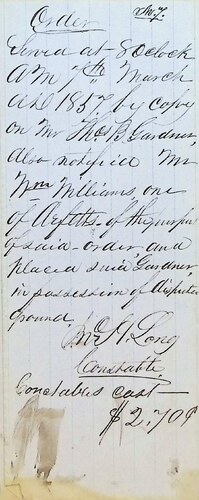 Order
Served at 8 Oclock
AM 7th March
AD 1857 by copy
on Mr Thos B Gardner,
Also notified Mr
Wm Williams one
of of the
of said order and
placed said Gardner,
in possession of
ground.
Long
Constable
Constables cost
$2.70